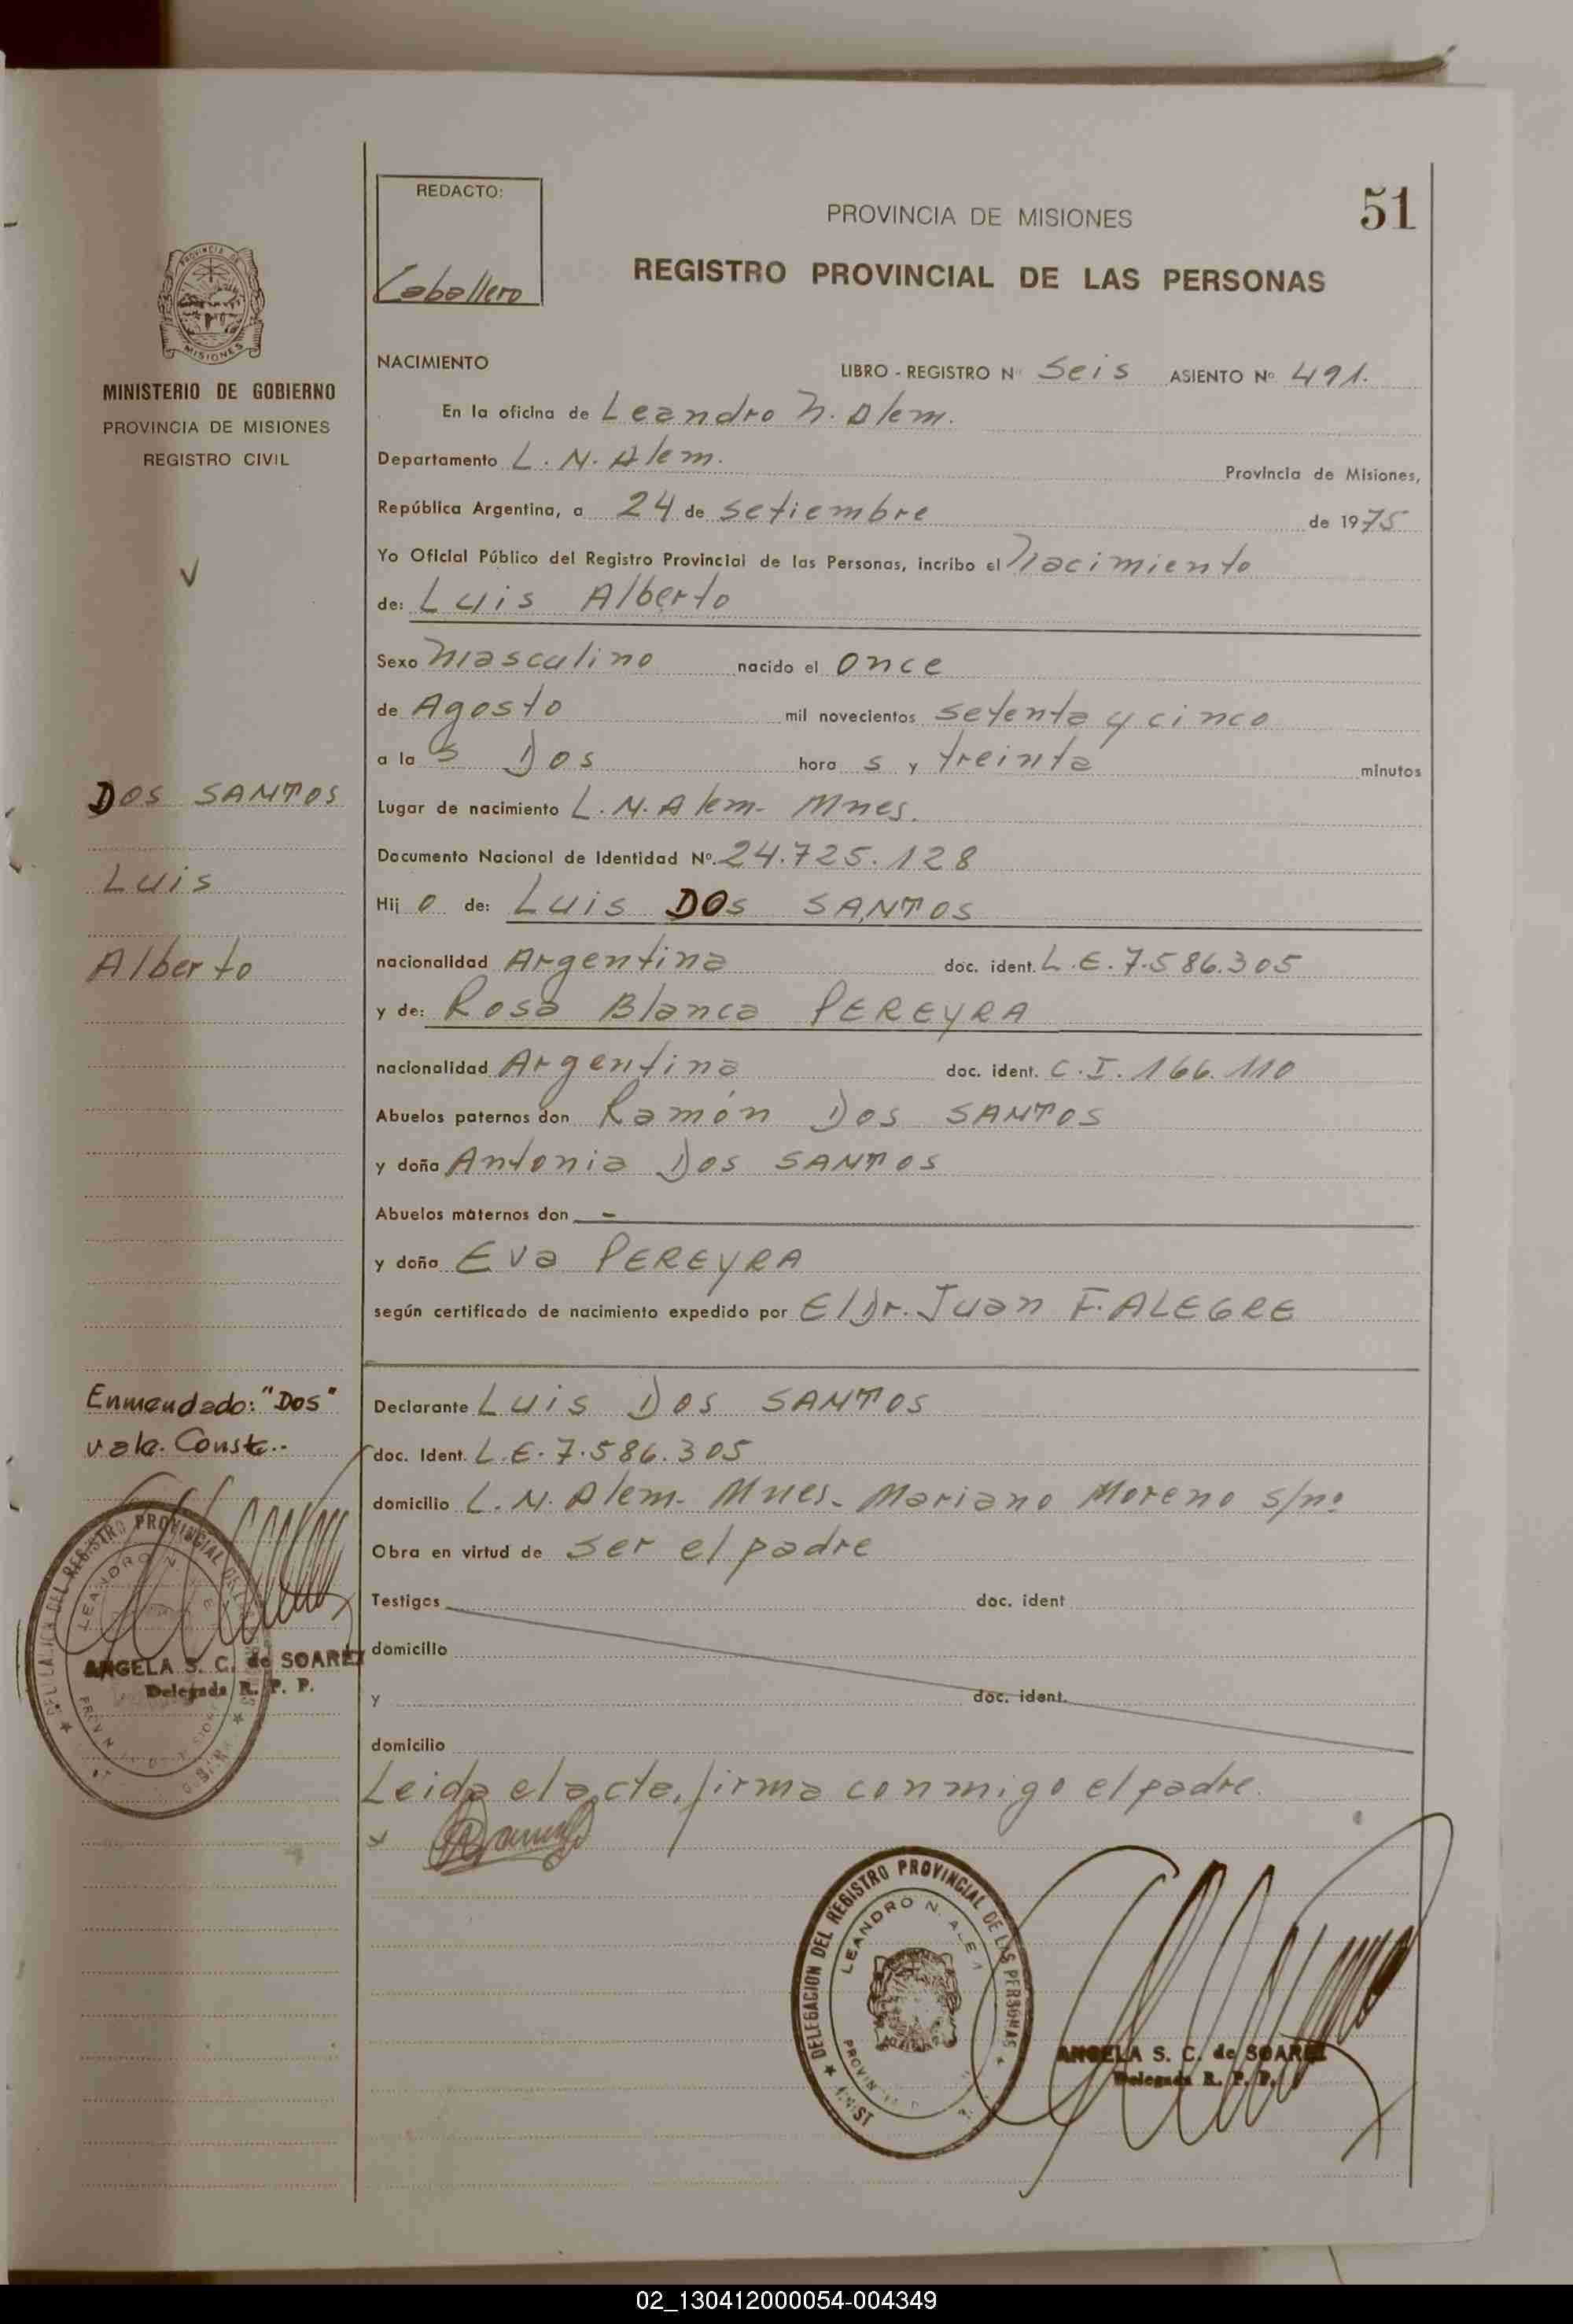 REDACTO:
Caballero
PROVINCIA DE MISIONES
51
REGISTRO PROVINCIAL DE LAS PERSONAS
PROVINCIA DE
MISIONES
MINISTERIO DE GOBIERNO
PROVINCIA DE MISIONES
REGISTRO CIVIL
NACIMIENTO
LIBRO - REGISTRO Nº Seis ASIENTO Nº 491.
En la oficina de Leandro N. Alem.
Departamento L. N. Alem. Provincia de Misiones,
República Argentina, a 24 de setiembre de 1975
Yo Oficial Público del Registro Provincial de las Personas, incribo el Nacimiento
de: Luis Alberto
Sexo Masculino nacido el once
de Agosto mil novecientos setenta y cinco
a la s Dos hora s y treinta minutos
Lugar de nacimiento L. N. Alem - Mnes.
Documento Nacional de Identidad Nº. 24.725.128
Hij o de: Luis DOS SANTOS
nacionalidad Argentina doc. ident. L.E. 7.586.305
y de: Rosa Blanca PEREYRA
nacionalidad Argentina doc. ident. C.I. 166.110
Abuelos paternos don Ramón Dos SANTOS
y doña Antonia Dos SANTOS
Abuelos maternos don -
y doña Eva PEREYRA
según certificado de nacimiento expedido por El Dr. Juan F. ALEGRE
DOS SANTOS
Luis
Alberto
Enmendado: "Dos"
vale. Conste.-
Declarante Luis Dos SANTOS
doc. Ident. L.E. 7.586.305
domicilio L. N. Alem - Mnes - Mariano Moreno s/nº
Obra en virtud de ser el padre
Testigos doc. ident
domicilio
y doc. ident.
domicilio
Leida el acta, firma conmigo el padre.
x
DELEGACION DEL REGISTRO PROVINCIAL DE LAS PERSONAS
LEANDRO N. ALEM
ANGELA S. C. de SOAREZ
Delegada R. P. P.
DELEGACION DEL REGISTRO PROVINCIAL DE LAS PERSONAS
LEANDRO N. ALEM
ANGELA S. C. de SOAREZ
Delegada R. P. P.
02_130412000054-004349